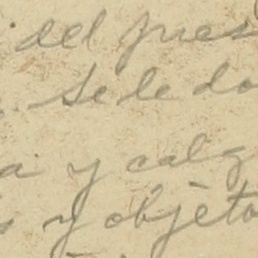 del pres
Se le do
a y calz
s y objèto